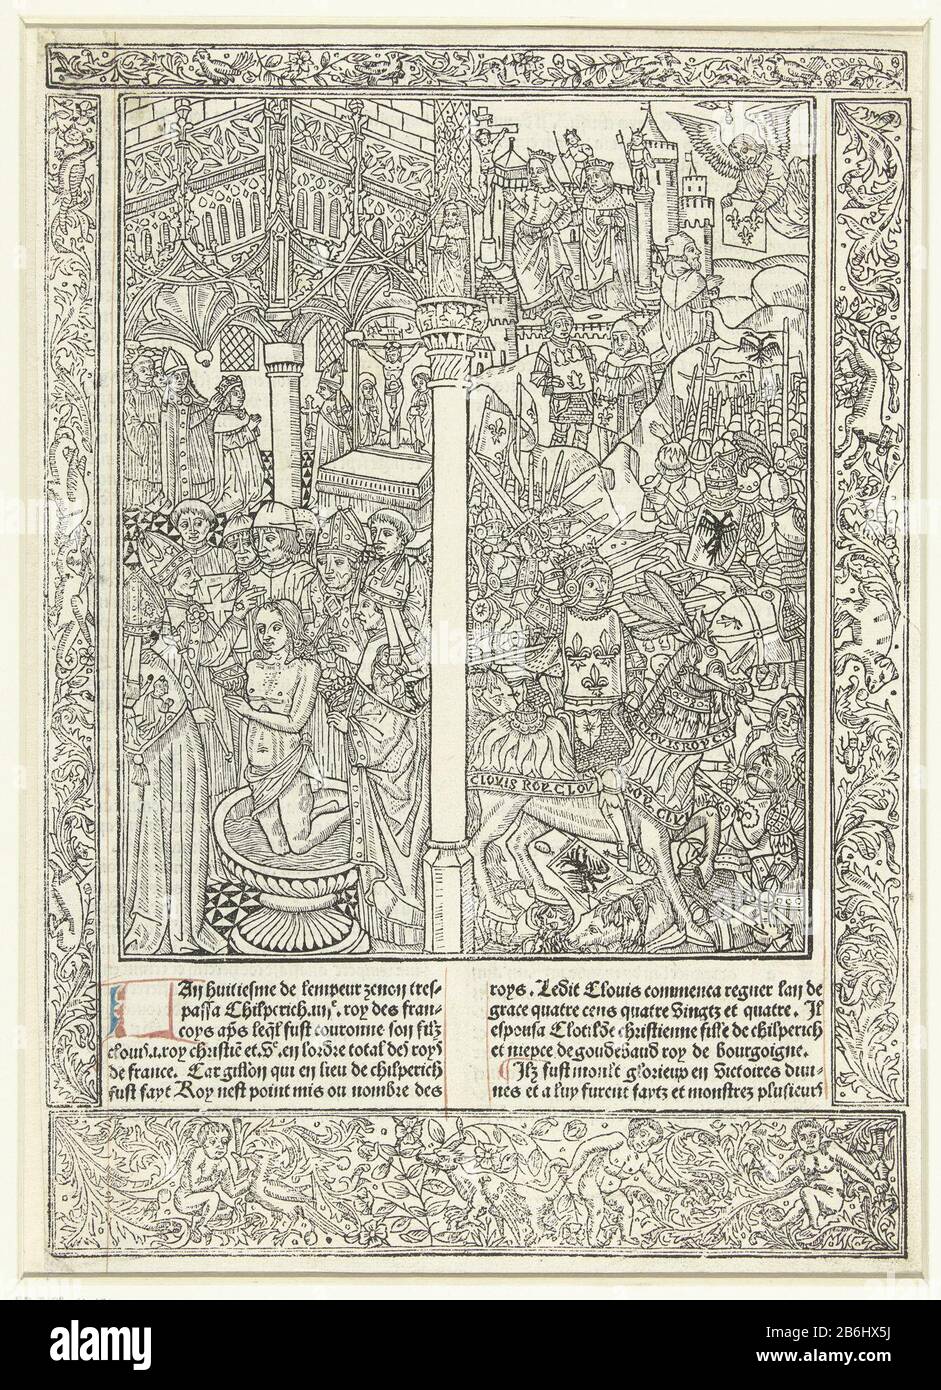 CLOVIS ROY CLOV
An huitiesme de lempeur zenon tres-
passa Chilperich .iiii. roy des fran-
coys aps leql fust couronne son filz
clouis .i. roy christie et en lordre total des roys
de france. Car gillon qui en lieu de chilperich
fust fayt Roy nest point mis ou nombre des
roys. Ledit Clouis commenca regner lan de
grace quatre cens quatre vingtz et quatre. Il
espousa Clotilde christienne fille de chilperich
et niepce de goudebaud roy de bourgoigne.
Ilz fust moult glorieux en victoires diui-
nes et a luy furent faytz et monstrez plusieurs
alamy stock photo
Image ID: 2B6HX5J
www.alamy.com